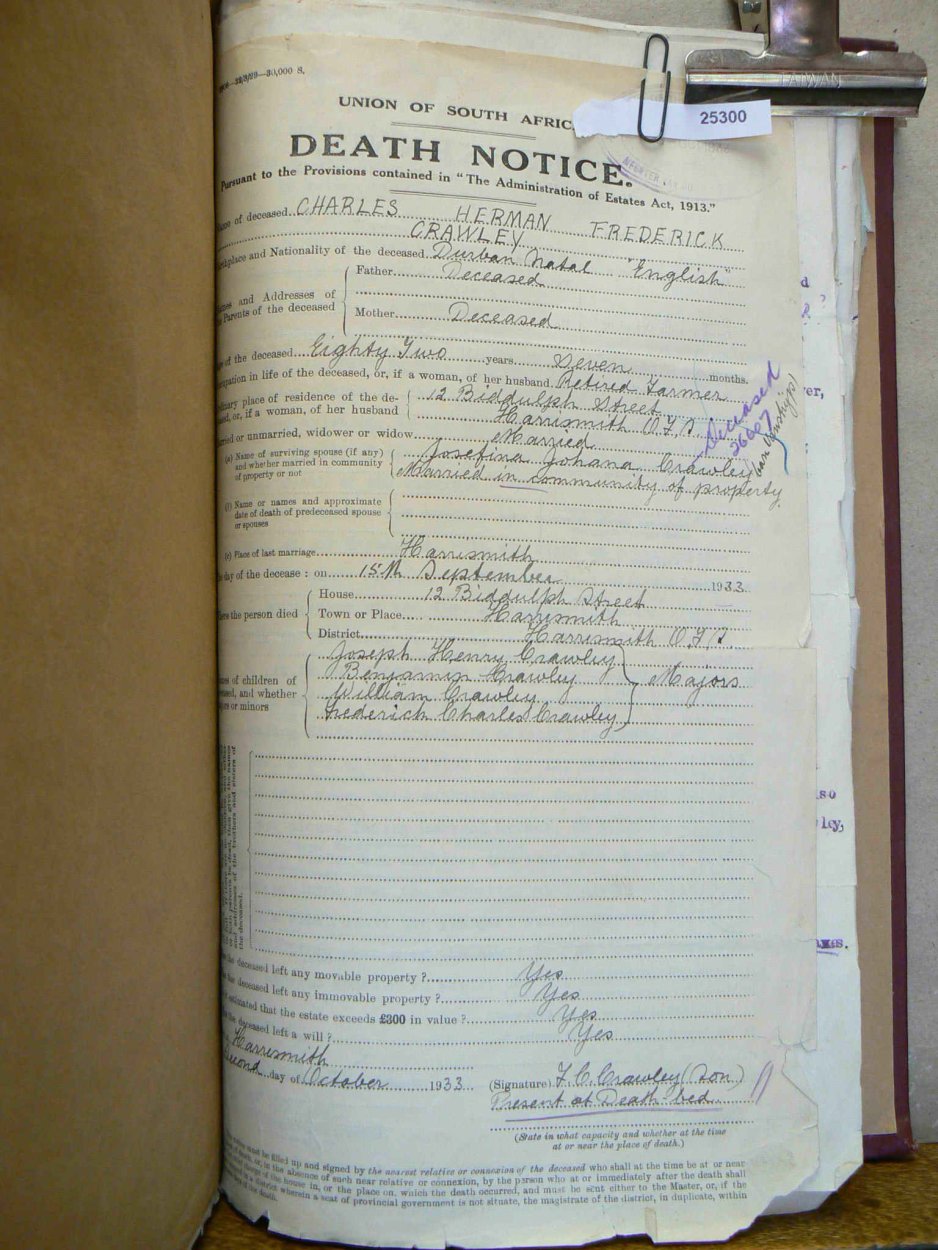 —30,000 S.
25300
TAIWAN
UNION OF SOUTH AFRIC
DEATH NOTICE.
Pursuant to the Provisions contained in "The Administration of Estates Act, 1913."
me of deceased CHARLES HERMAN FREDERICK
CRAWLEY
rthplace and Nationality of the deceased Durban Natal "English"
Father Deceased
mes and Addresses of
he Parents of the deceased
Mother Deceased
ge of the deceased Eighty Two years Seven months.
cupation in life of the deceased, or, if a woman, of her husband Retired Farmer
dinary place of residence of the de- 12 Biddulph Street
sed, or, if a woman, of her husband Harrismith O.F.S.
rried or unmarried, widower or widow Married
(a) Name of surviving spouse (if any) Josefina Johana Crawley
and whether married in community Married in community of property
of property or not
Deceased
26607
(b) Name or names and approximate
date of death of predeceased spouse
or spouses
(c) Place of last marriage Harrismith
e day of the decease : on 15th September 1933
House 12 Biddulph Street
ere the person died Town or Place Harrismith
District Harrismith O.F.S.
Joseph Henry Crawley
mes of children of Benjamin Crawley Majors
eased, and whether William Crawley
ors or minors Frederich Charles Crawley
and addresses of the brothers and sisters of
the deceased.
s the deceased left any movable property ? Yes
s the deceased left any immovable property ? Yes
estimated that the estate exceeds £300 in value ? Yes
s the deceased left a will ? Yes
Harrismith
Second day of October 1933
(Signature) F. C. Crawley (Son)
Present at Death bed
(State in what capacity and whether at the time
at or near the place of death.)
must be filled up and signed by the nearest relative or connexion of the deceased who shall at the time be at or near
of death, or, in the absence of such near relative or connexion, by the person who at or immediately after the death shall
charge of the house in, or the place on, which the death occurred, and must be sent either to the Master, or, if the
in a district wherein a seat of provincial government is not situate, the magistrate of the district, in duplicate, within
of the death.